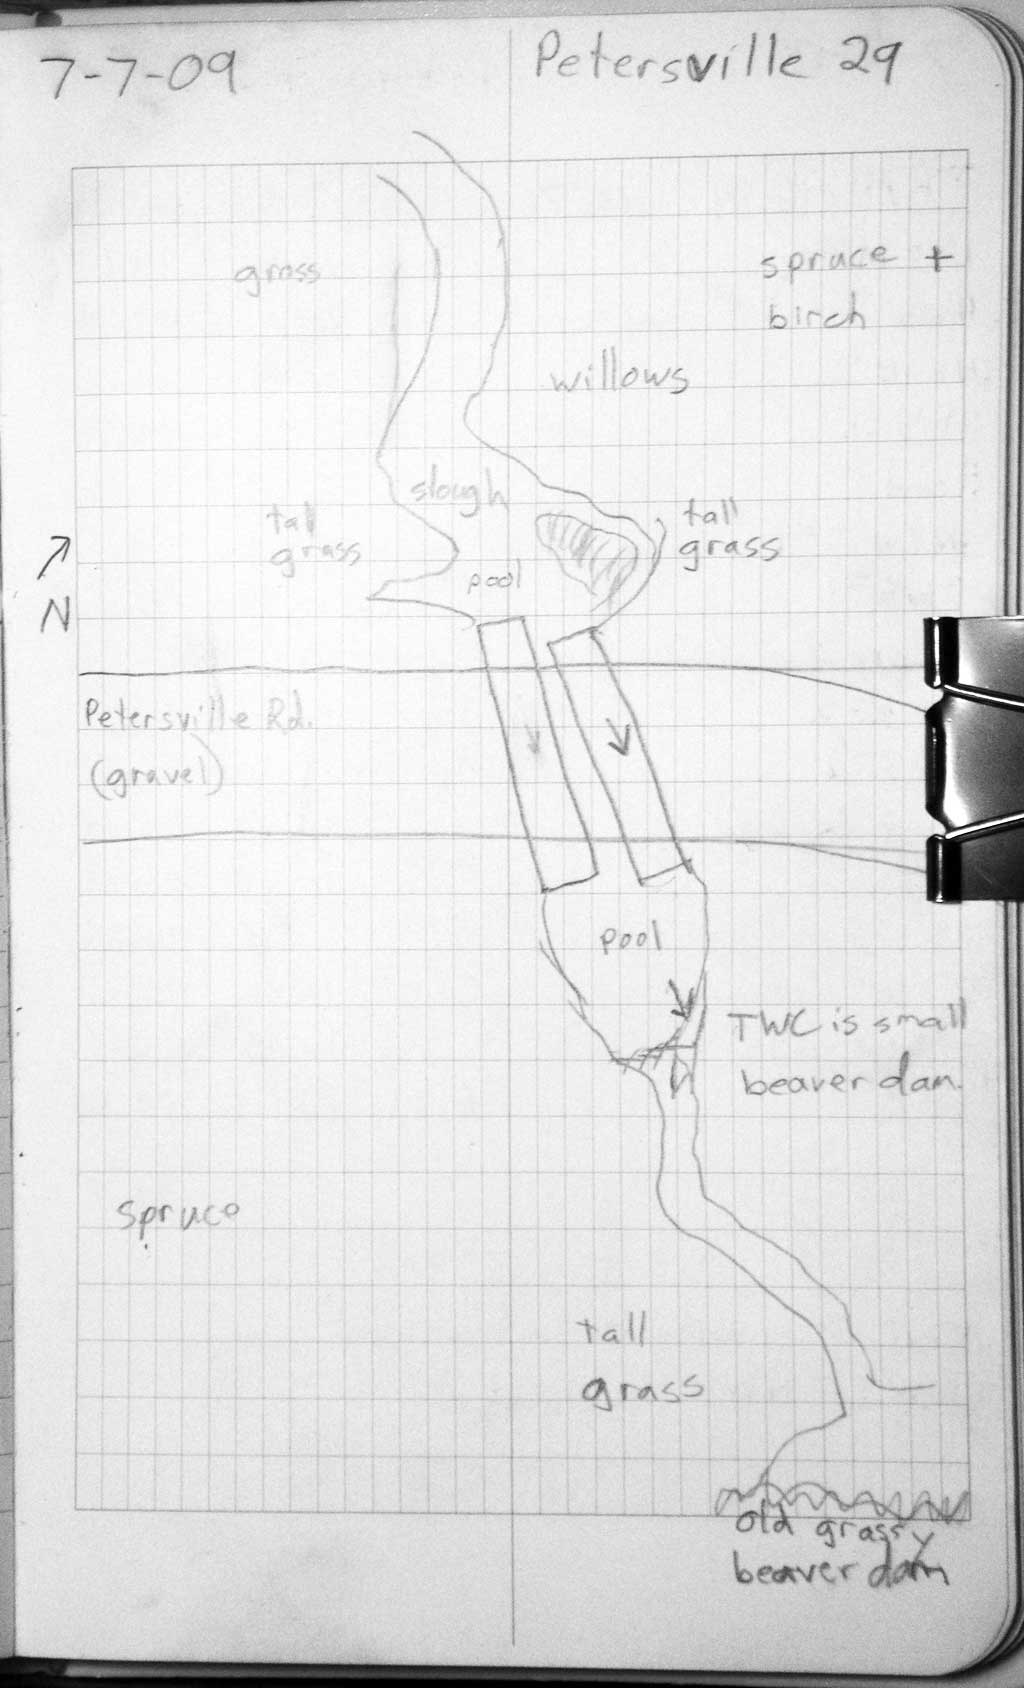 7-7-09
Petersville 29
grass
spruce +
birch
willows
slough
tall
grass
tall
grass
pool
N
Petersville Rd.
(gravel)
pool
TWC is small
beaver dam.
spruce
tall
grass
old grassy
beaver dam